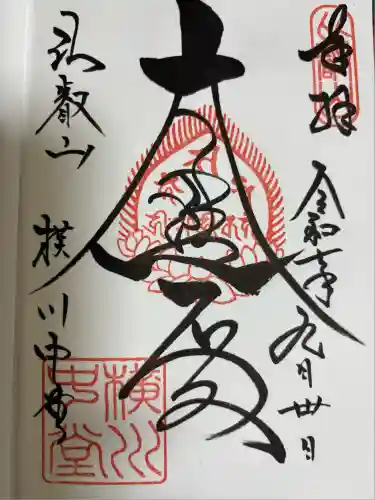 奉拝
令和年九月卅日
大悲殿
比叡山 横川中堂
横川
中堂